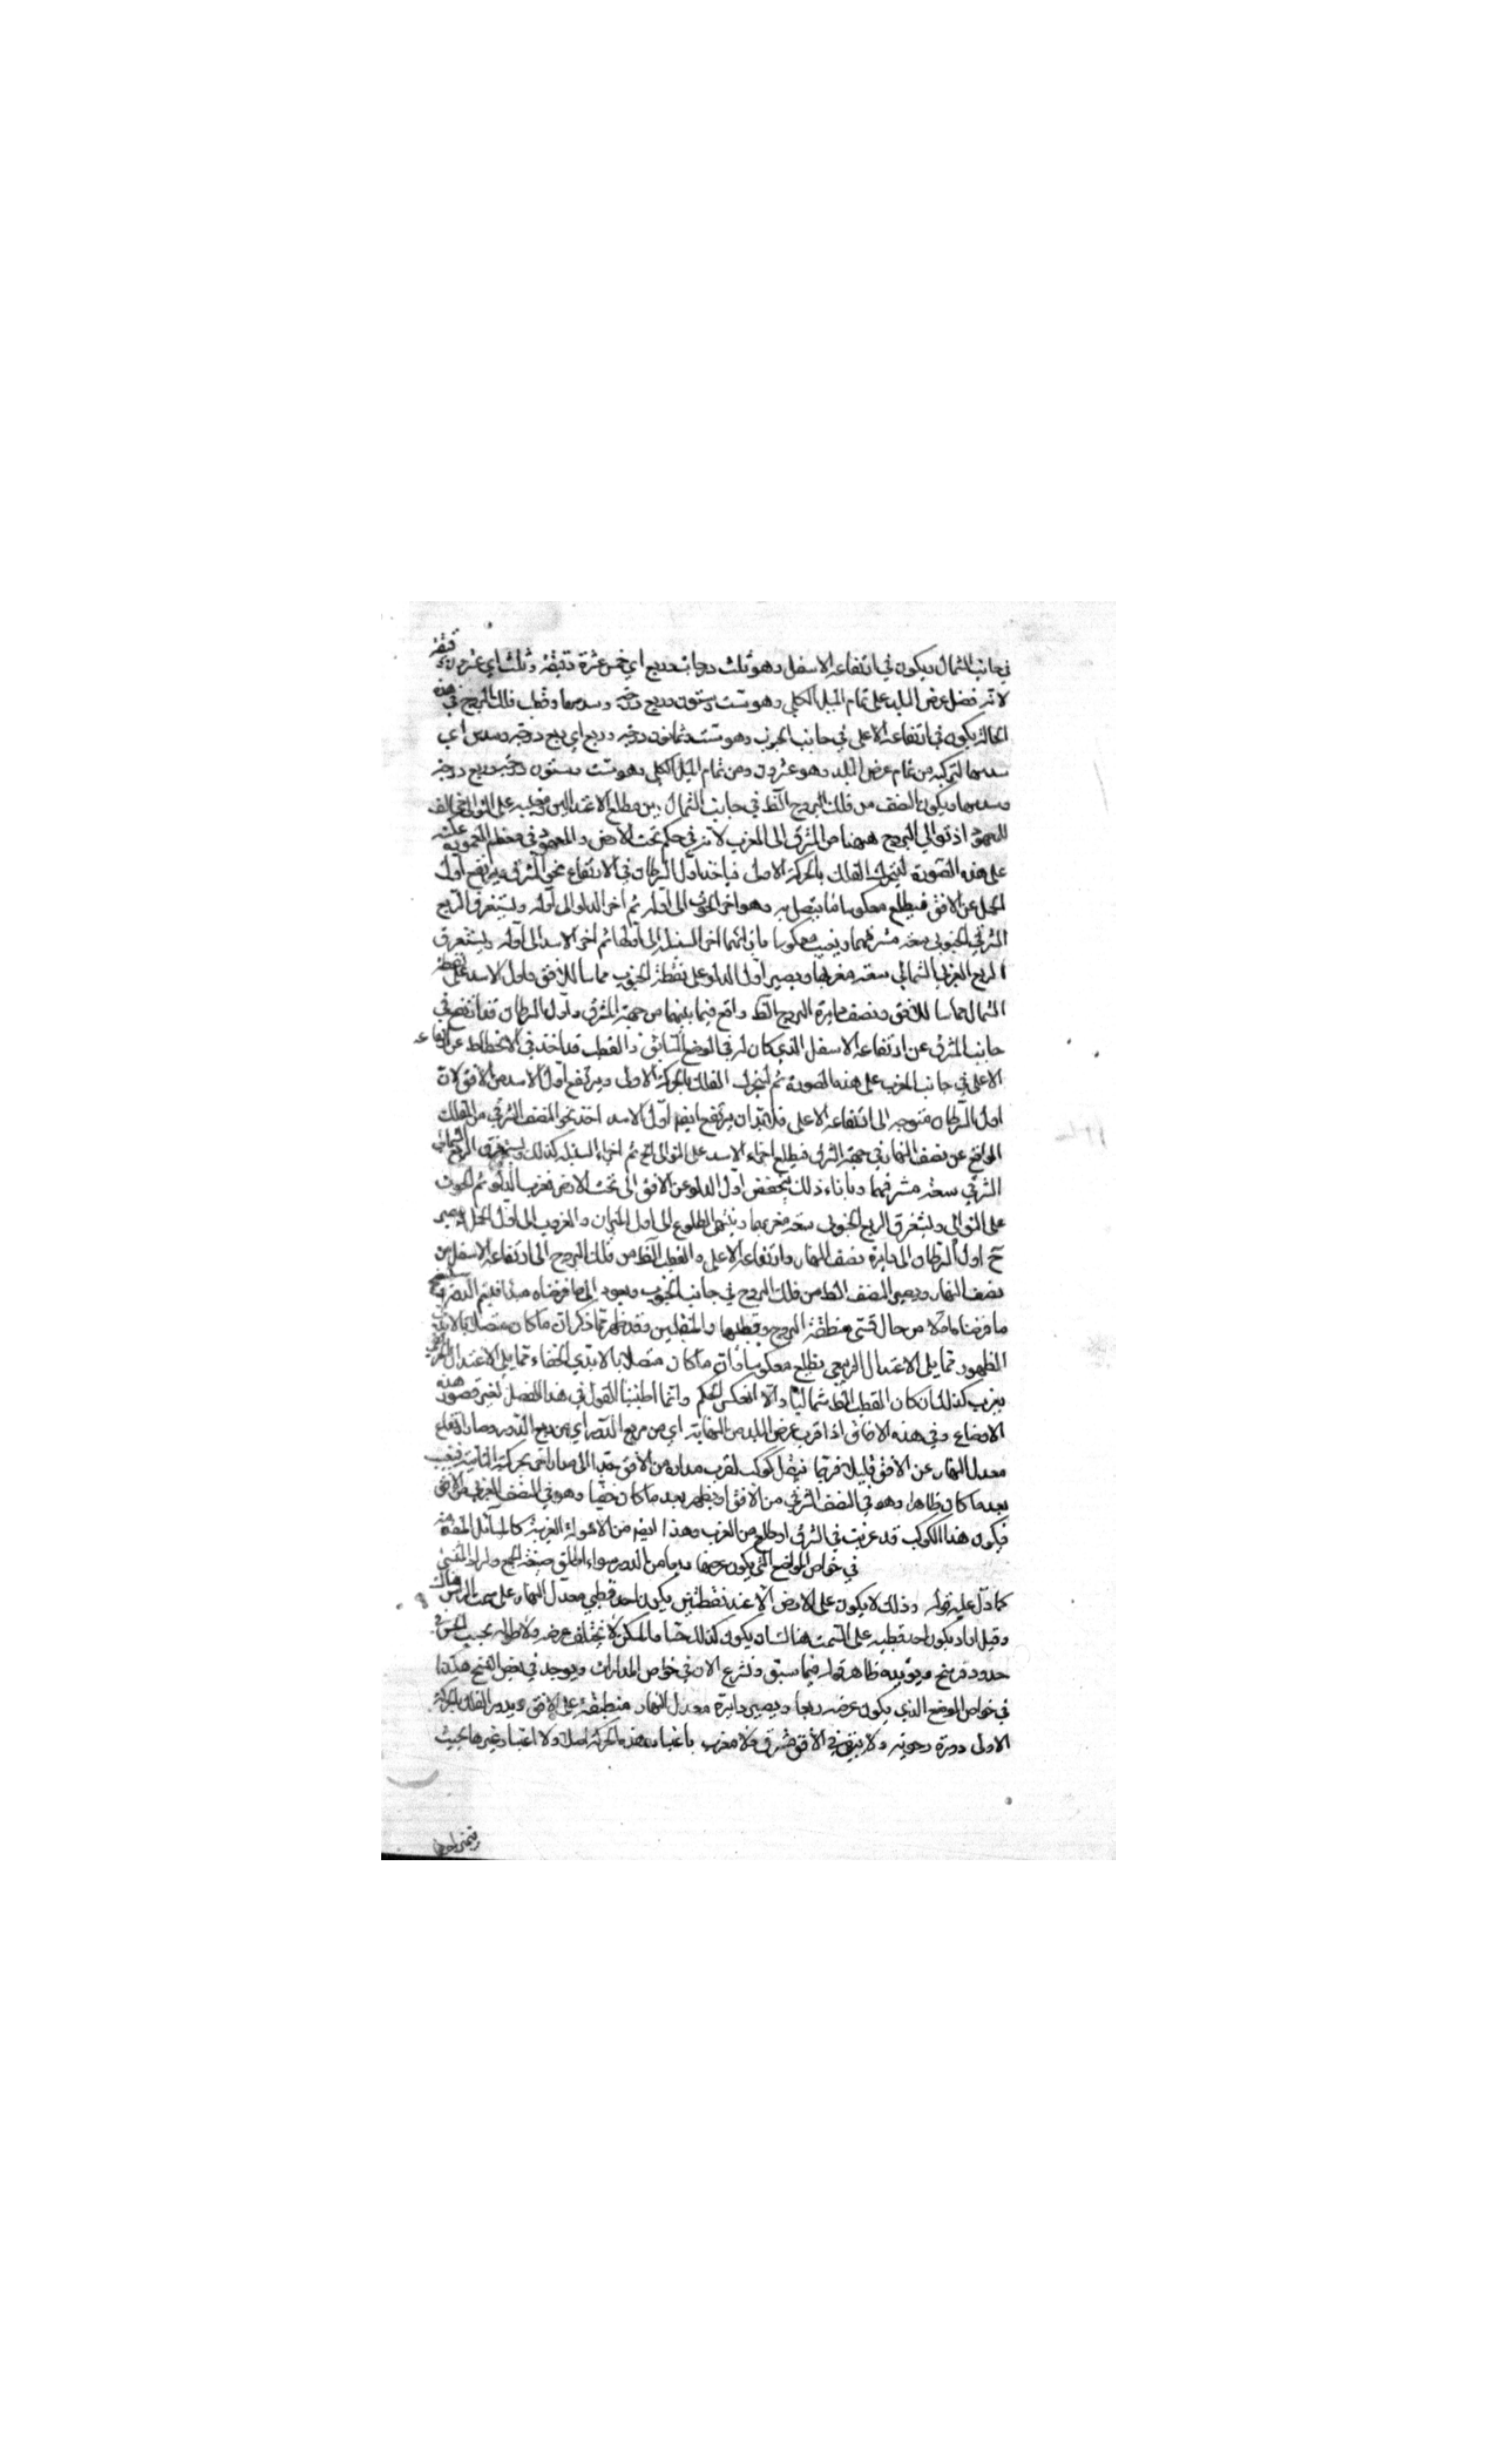 في جانب الشمال ويكون في ارتفاعه الاسفل وهو ثلث درجات وربع اي خمس عشرة دقيقة وثلث اي عشرون دقيقة
لانه فضل عرض البلد على تمام الميل الكلي وهو ست وستون وربع درجة وسدسها وقطب فلك البروج في هذه
الحالة يكون في ارتفاعه الاعلى في جانب الجنوب وهو ست وثمانون درجة وربع اي ربع درجة وسدس اي
سدسها لتركبه من تمام عرض البلد وهو عشرون ومن تمام الميل الكلي وهو ست وستون درجة وربع درجة
وسدسها ويكون النصف من فلك البروج الظ في جانب الشمال بين مطلع الاعتدالين ومغيبه على التوالي المخالف
للمعهود اذ توالي البروج ههنا من المشرق الى المغرب لانه في حكم تحت الارض والمعهود في معظم المعمورة عكسه
على هذه الصورة ليتحرك الفلك بالحركة الاولى فياخذ اول السرطان في الارتفاع نحو المشرق ويرتفع اول
الحمل عن الافق فيطلع معكوسا ما يتصل به وهو اخر الحوت الى اوله ثم اخر الدلو الى اوله ويستغرق الربع
الشرقي الجنوبي سعة مشرقهما ويغيب معكوسا ما اخر السنبلة الى اولها ثم اخر الاسد الى اوله ويستغرق
الربع الغربي الشمالي سعة مغربهما ويصير اول الدلو على نقطة الجنوب مماسا للافق واول الاسد على نقطة
الشمال مماسا للافق ونصف دايرة البروج الظ واقع فيما بينهما من جهة المشرق واول السرطان قد ارتفع في
جانب المشرق عن ارتفاعه الاسفل الذي كان له في الوضع السابق والقطب قد اخذ في الانحطاط عن ارتفاعه
الاعلى في جانب المغرب على هذه الصورة ثم ليتحرك الفلك بالحركة الاولى ويرتفع اول الاسد من الافق لان
اول السرطان متوجه الى ارتفاعه الاعلى فلا بد ان يرتفع ايضا اول الاسد اخذ نحو النصف الشرقي من الفلك
الواقع عن نصف النهار في جهة الشرق فيطلع اجزاء الاسد على التوالي ثم اجزاء السنبلة كذلك ويستغرق الربع الشمالي
الشرقي سعة مشرقهما وبازاء ذلك ينخفض اول الدلو عن الافق الى تحت الارض فيغرب الدلو ثم الحوت
على التوالي ويستغرق الربع الجنوبي سعة مغربهما وينتهي الطلوع الى اول الميزان والغروب الى اول الحمل ويصير
ح اول السرطان الى دايرة نصف النهار وارتفاعه الاعلى والقطب الظ من فلك البروج الى ارتفاعه الاسفل من
نصف النهار ويصير النصف الظ من فلك البروج في جانب الجنوب ويعود الى ما فرضناه مبدا فيتم
ما فرضنا من حال قسي منطقة البروج وقطبها والمنقلبين وقد ظهر مما ذكر ان ما كان متصلا بالابدي
الظهور مما يلي الاعتدال الربيعي يطلع معكوسا وان ما كان متصلا بالابدي الخفاء مما يلي الاعتدال الخريفي
يغرب كذلك ان كان القطب الظ شماليا والا انعكس الحكم وانما اطنبنا القول في هذا الفصل لتصور هذه
الاوضاع وفي هذه الافاق اذا قرب عرض البلد من النهاية اي من ربع الدور وصار ارتفاع
معدل النهار عن الافق قليلا فربما كوكب لقرب مداره من الافق الى مدار اخر بحركته الثانية فيغيب
بعد ما كان ظاهرا وهو في النصف الشرقي من الافق او يظهر بعد ما كان خفيا وهو في النصف الغربي من الافق
فيكون هذا الكوكب قد غرب في الشرق او طلع من الغرب وهذا ايضا من الاحوال الغريبة كالمسائل المتقدمة
في خواص المواضع التي يكون عرضها ربعا من الدور سواء اطلق صيغة الجمع واراد المثنى
كما دل عليه قوله وذلك لا يكون على الارض الا عند نقطتين يكون احد قطبي معدل النهار على سمت الراس هناك
وقيل اراد يكون احد قطبيه على السمت هناك ان يكون كذلك حسا لا يختلف عرضه ولا طوله بحسب الحس في
حدود فرسخ ويؤيده ظاهر قوله فيما سبق ونشرع الان في خواص المدارات ويوجد في بعض النسخ هكذا
في خواص الموضع الذي يكون عرضه ربعا ويصير دايرة معدل النهار منطبقة على الافق ويدور الفلك بالحركة
الاولى دورة رحوية ولا يتعين في الافق مشرق ولا مغرب باعتبار هذه الحركة اصلا ولا اعتبار غيرها بحيث